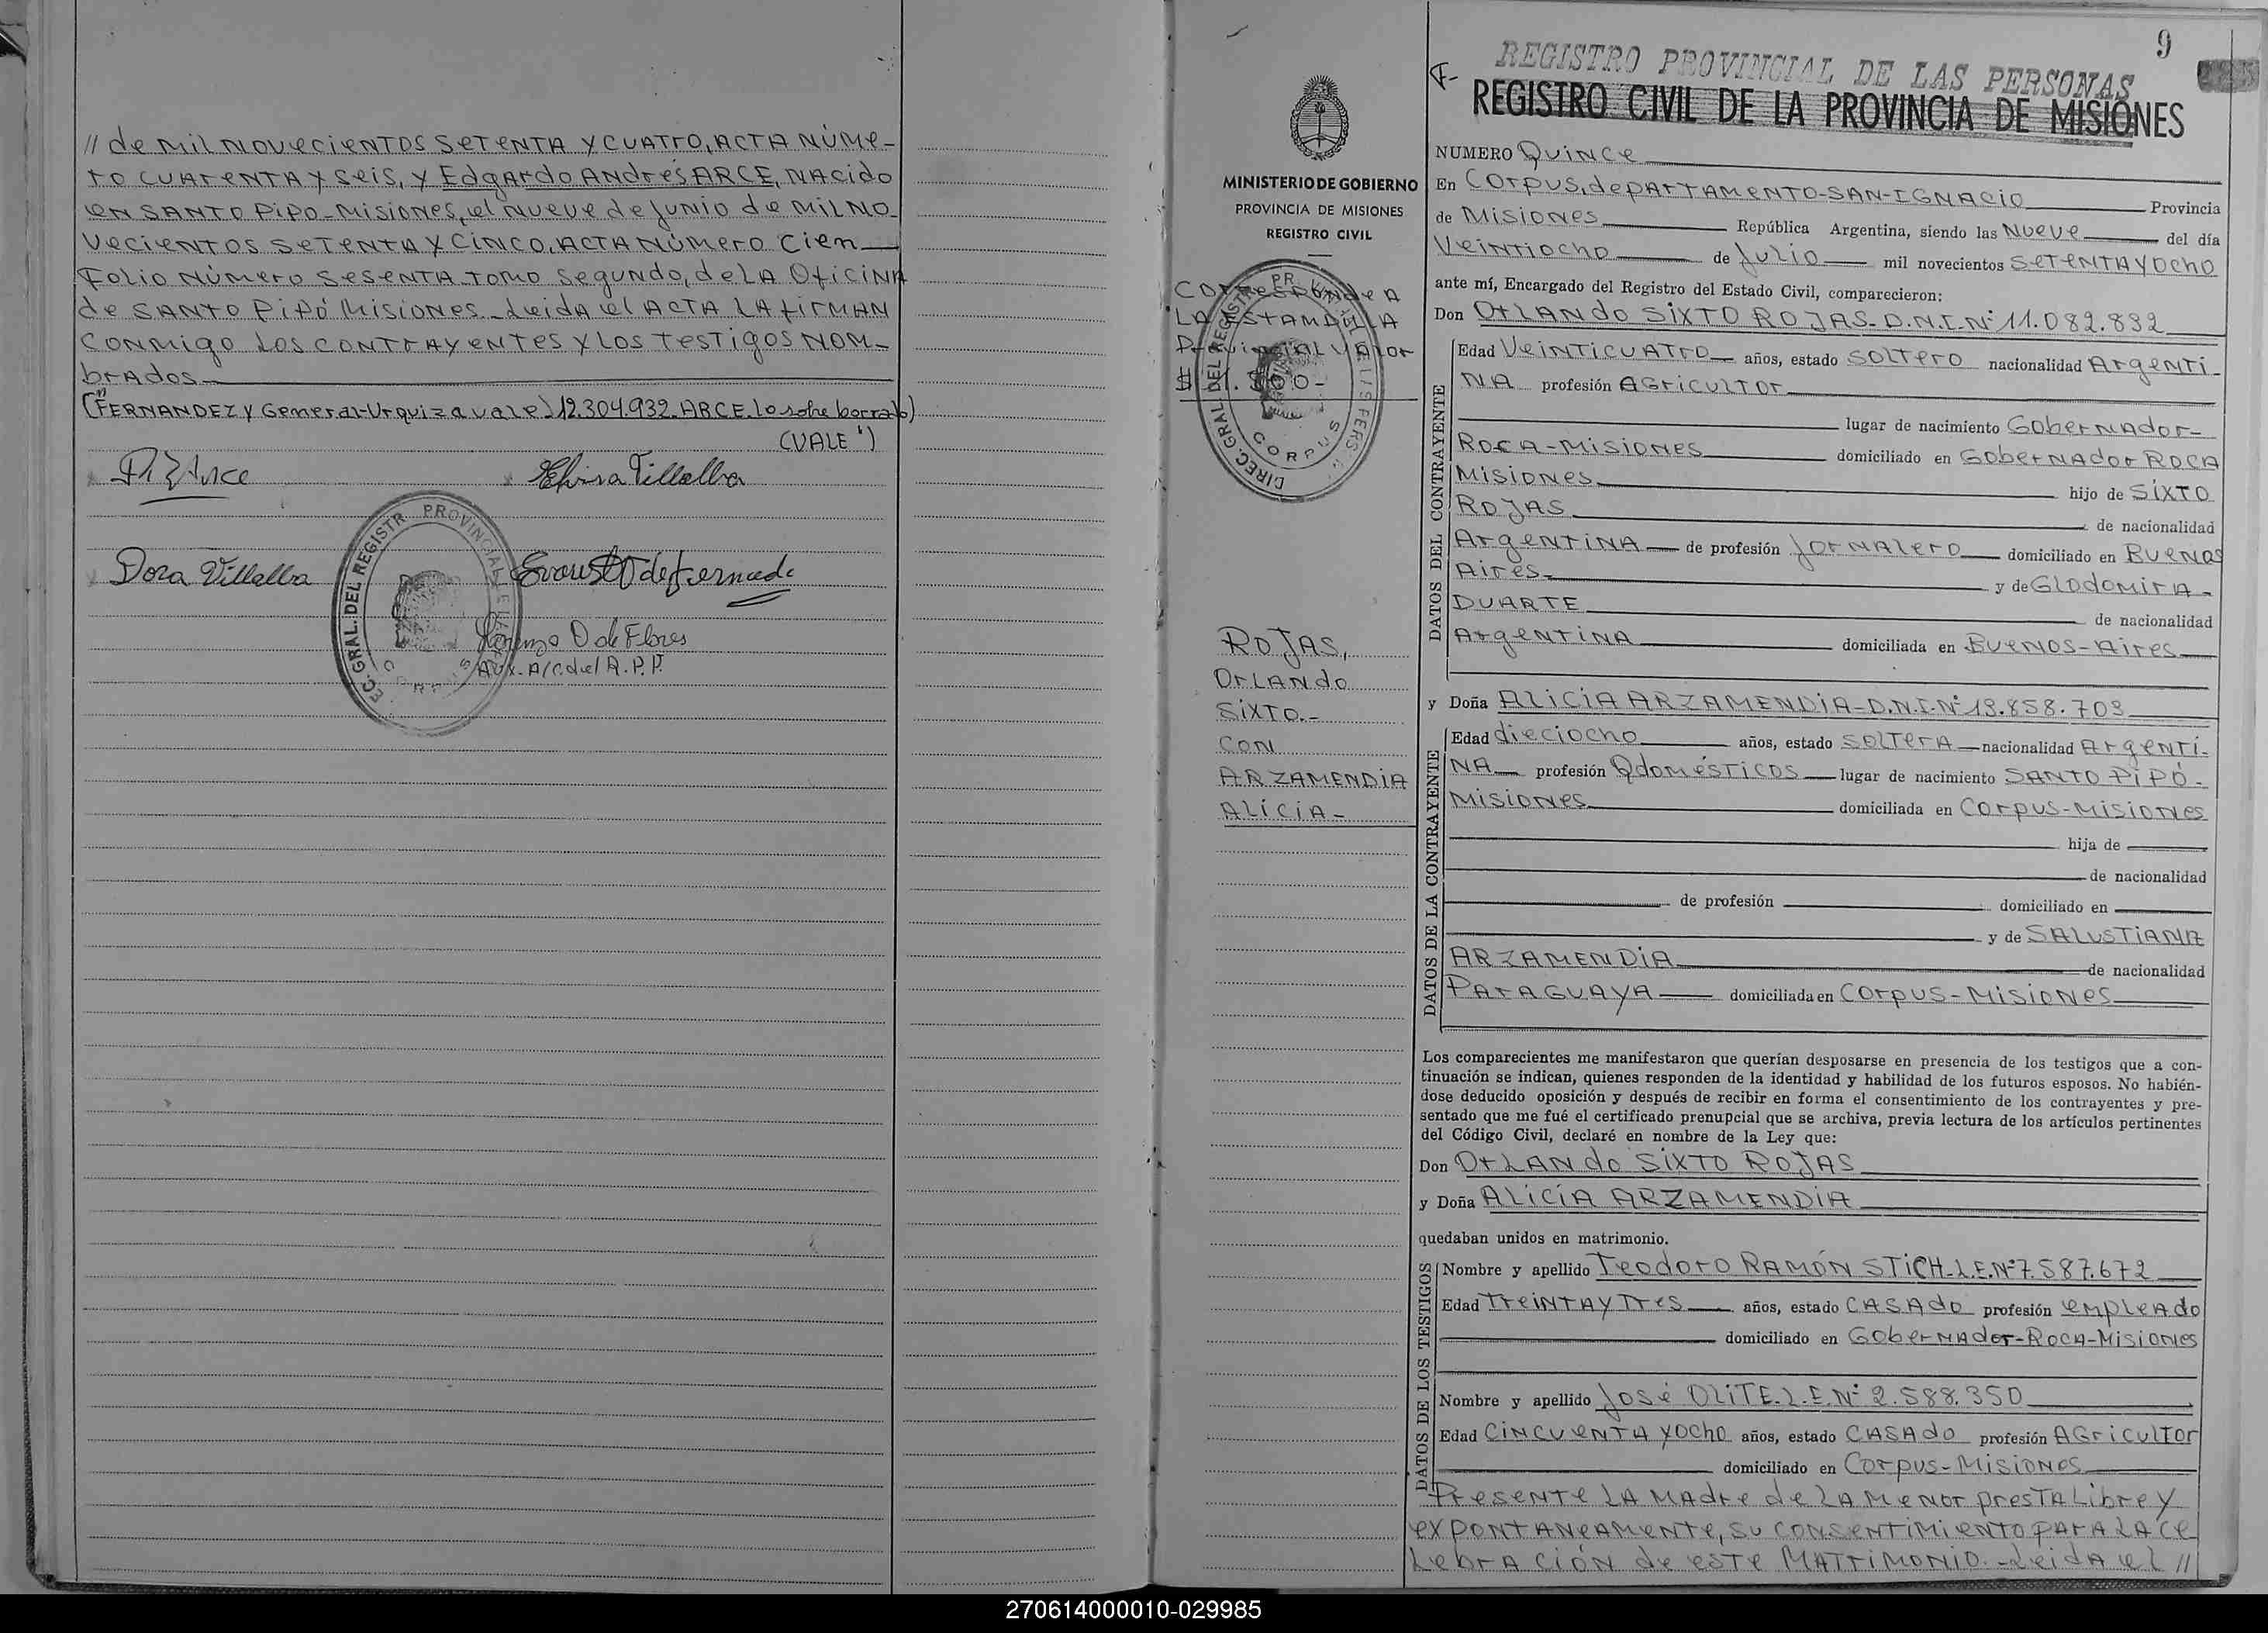 // de mil novecientos setenta y cuatro, acta núme-
ro cuarenta y seis, y Edgardo Andrés ARCE, nacido
en Santo Pipo-Misiones, el nueve de junio de mil no-
vecientos setenta y cinco, acta número cien
folio número sesenta tomo segundo, de la oficina
de Santo Pipó Misiones. Leida el acta la firman
conmigo los contrayentes y los testigos nom-
brados
(FERNANDEZ y General-Urquiza vale) 12.304.932. ARCE. lo sobre borrado)
(VALE)
Elvira Villalba
Dora Villalba
D de Flores
EC. GRAL. DEL REGISTR. PROVINCIAL
9
REGISTRO PROVINCIAL DE LAS PERSONAS
REGISTRO CIVIL DE LA PROVINCIA DE MISIONES
MINISTERIO DE GOBIERNO
PROVINCIA DE MISIONES
REGISTRO CIVIL
Corresponde A
LA ESTAMPILLA
Provincial Valor
DIREC. GRAL. DEL REGISTR. PR
CORPUS
ROJAS,
Orlando
Sixto.-
con
ARZAMENDIA
Alicia-
NUMERO Quince
En Corpus, departamento-San-Ignacio Provincia
de Misiones República Argentina, siendo las Nueve del día
Veintiocho de Julio mil novecientos setenta y ocho
ante mí, Encargado del Registro del Estado Civil, comparecieron:
Don Orlando Sixto ROJAS-D.N.I.Nº 11.082.832
DATOS DEL CONTRAYENTE
Edad Veinticuatro años, estado soltero nacionalidad Argenti-
na profesión Agricultor
lugar de nacimiento Gobernador-
Roca-Misiones domiciliado en Gobernador Roca
Misiones hijo de Sixto
ROJAS de nacionalidad
Argentina de profesión Jornalero domiciliado en Buenos
Aires y de Glodomira-
DUARTE de nacionalidad
Argentina domiciliada en Buenos-Aires
y Doña Alicia ARZAMENDIA-D.N.I.Nº 13.858.703
DATOS DE LA CONTRAYENTE
Edad dieciocho años, estado soltera nacionalidad Argenti-
na profesión Qdomésticos lugar de nacimiento Santo Pipó-
Misiones domiciliada en Corpus-Misiones
hija de
de nacionalidad
de profesión domiciliado en
y de Salustiana
ARZAMENDIA de nacionalidad
Paraguaya domiciliada en Corpus-Misiones
Los comparecientes me manifestaron que querían desposarse en presencia de los testigos que a con-
tinuación se indican, quienes responden de la identidad y habilidad de los futuros esposos. No habién-
dose deducido oposición y después de recibir en forma el consentimiento de los contrayentes y pre-
sentado que me fué el certificado prenupcial que se archiva, previa lectura de los artículos pertinentes
del Código Civil, declaré en nombre de la Ley que:
Don Orlando Sixto ROJAS
y Doña Alicia ARZAMENDIA
quedaban unidos en matrimonio.
DATOS DE LOS TESTIGOS
Nombre y apellido Teodoro Ramón STICH-L.E.Nº 7.587.672
Edad treinta y tres años, estado casado profesión empleado
domiciliado en Gobernador-Roca-Misiones
Nombre y apellido José OLITE.L.E.Nº 2.588.350
Edad cincuenta y ocho años, estado casado profesión Agricultor
domiciliado en Corpus-Misiones
Presente la madre de la menor presta libre y
expontaneamente, su consentimiento para la ce
lebración de este matrimonio.-Leida el //
270614000010-029985